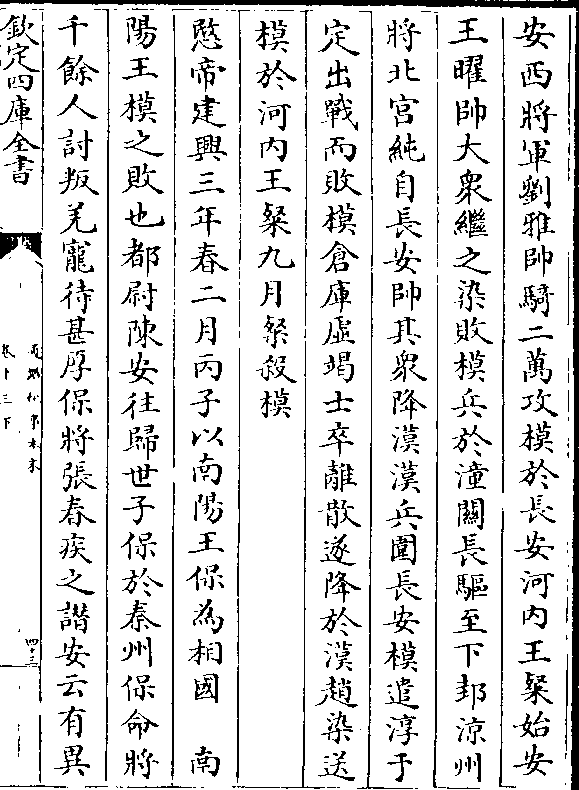 安西將軍劉雅帥騎二萬攻模於長安河内王粲始安
王曜帥大衆繼之染敗模兵於潼關長驅至下邽涼州
將北宫純自長安帥其衆降漢漢兵圍長安模遣淳于
定出戰而敗模倉庫虛竭士卒離散遂降於漢趙染送
模於河内王粲九月粲殺模
愍帝建興三年春二月丙子以南陽王保為相國　南
陽王模之敗也都尉陳安往歸世子保於秦州保命將
千餘人討叛羌寵待甚厚保將張春疾之譖安云有異
欽定四庫全書
卷十三下
四十三